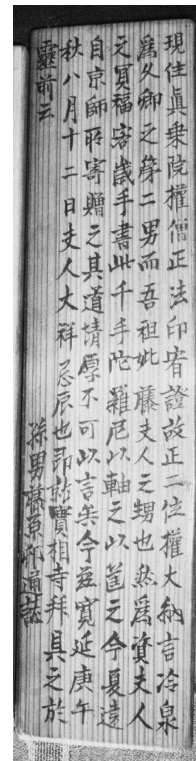 現住眞乗院權僧正法印宥證故正二位權大納言冷泉
爲久卿之第二男而吾祖妣藤夫人之甥也然爲資夫人
之冥福客歳手書此千手陀羅尼以軸之以筐之今夏遠
自京師所寄贈之其道情厚不可以言矣今茲寛延庚午
秋八月十二日夫人大祥忌辰也即詣實相寺拜具之於
靈前云
孫男藤原師道誌